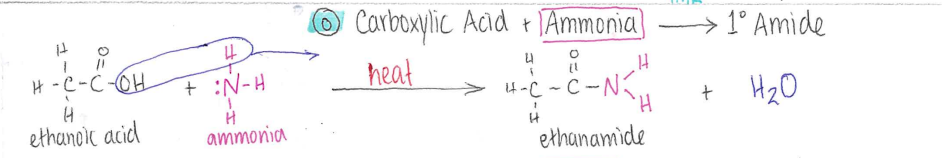 ⓪ Carboxylic Acid + Ammonia → 1° Amide
H O H
H - C - C - OH + :N - H heat → H - C - C - N H + H2O
H H H O H
ethanoic acid ammonia ethanamide